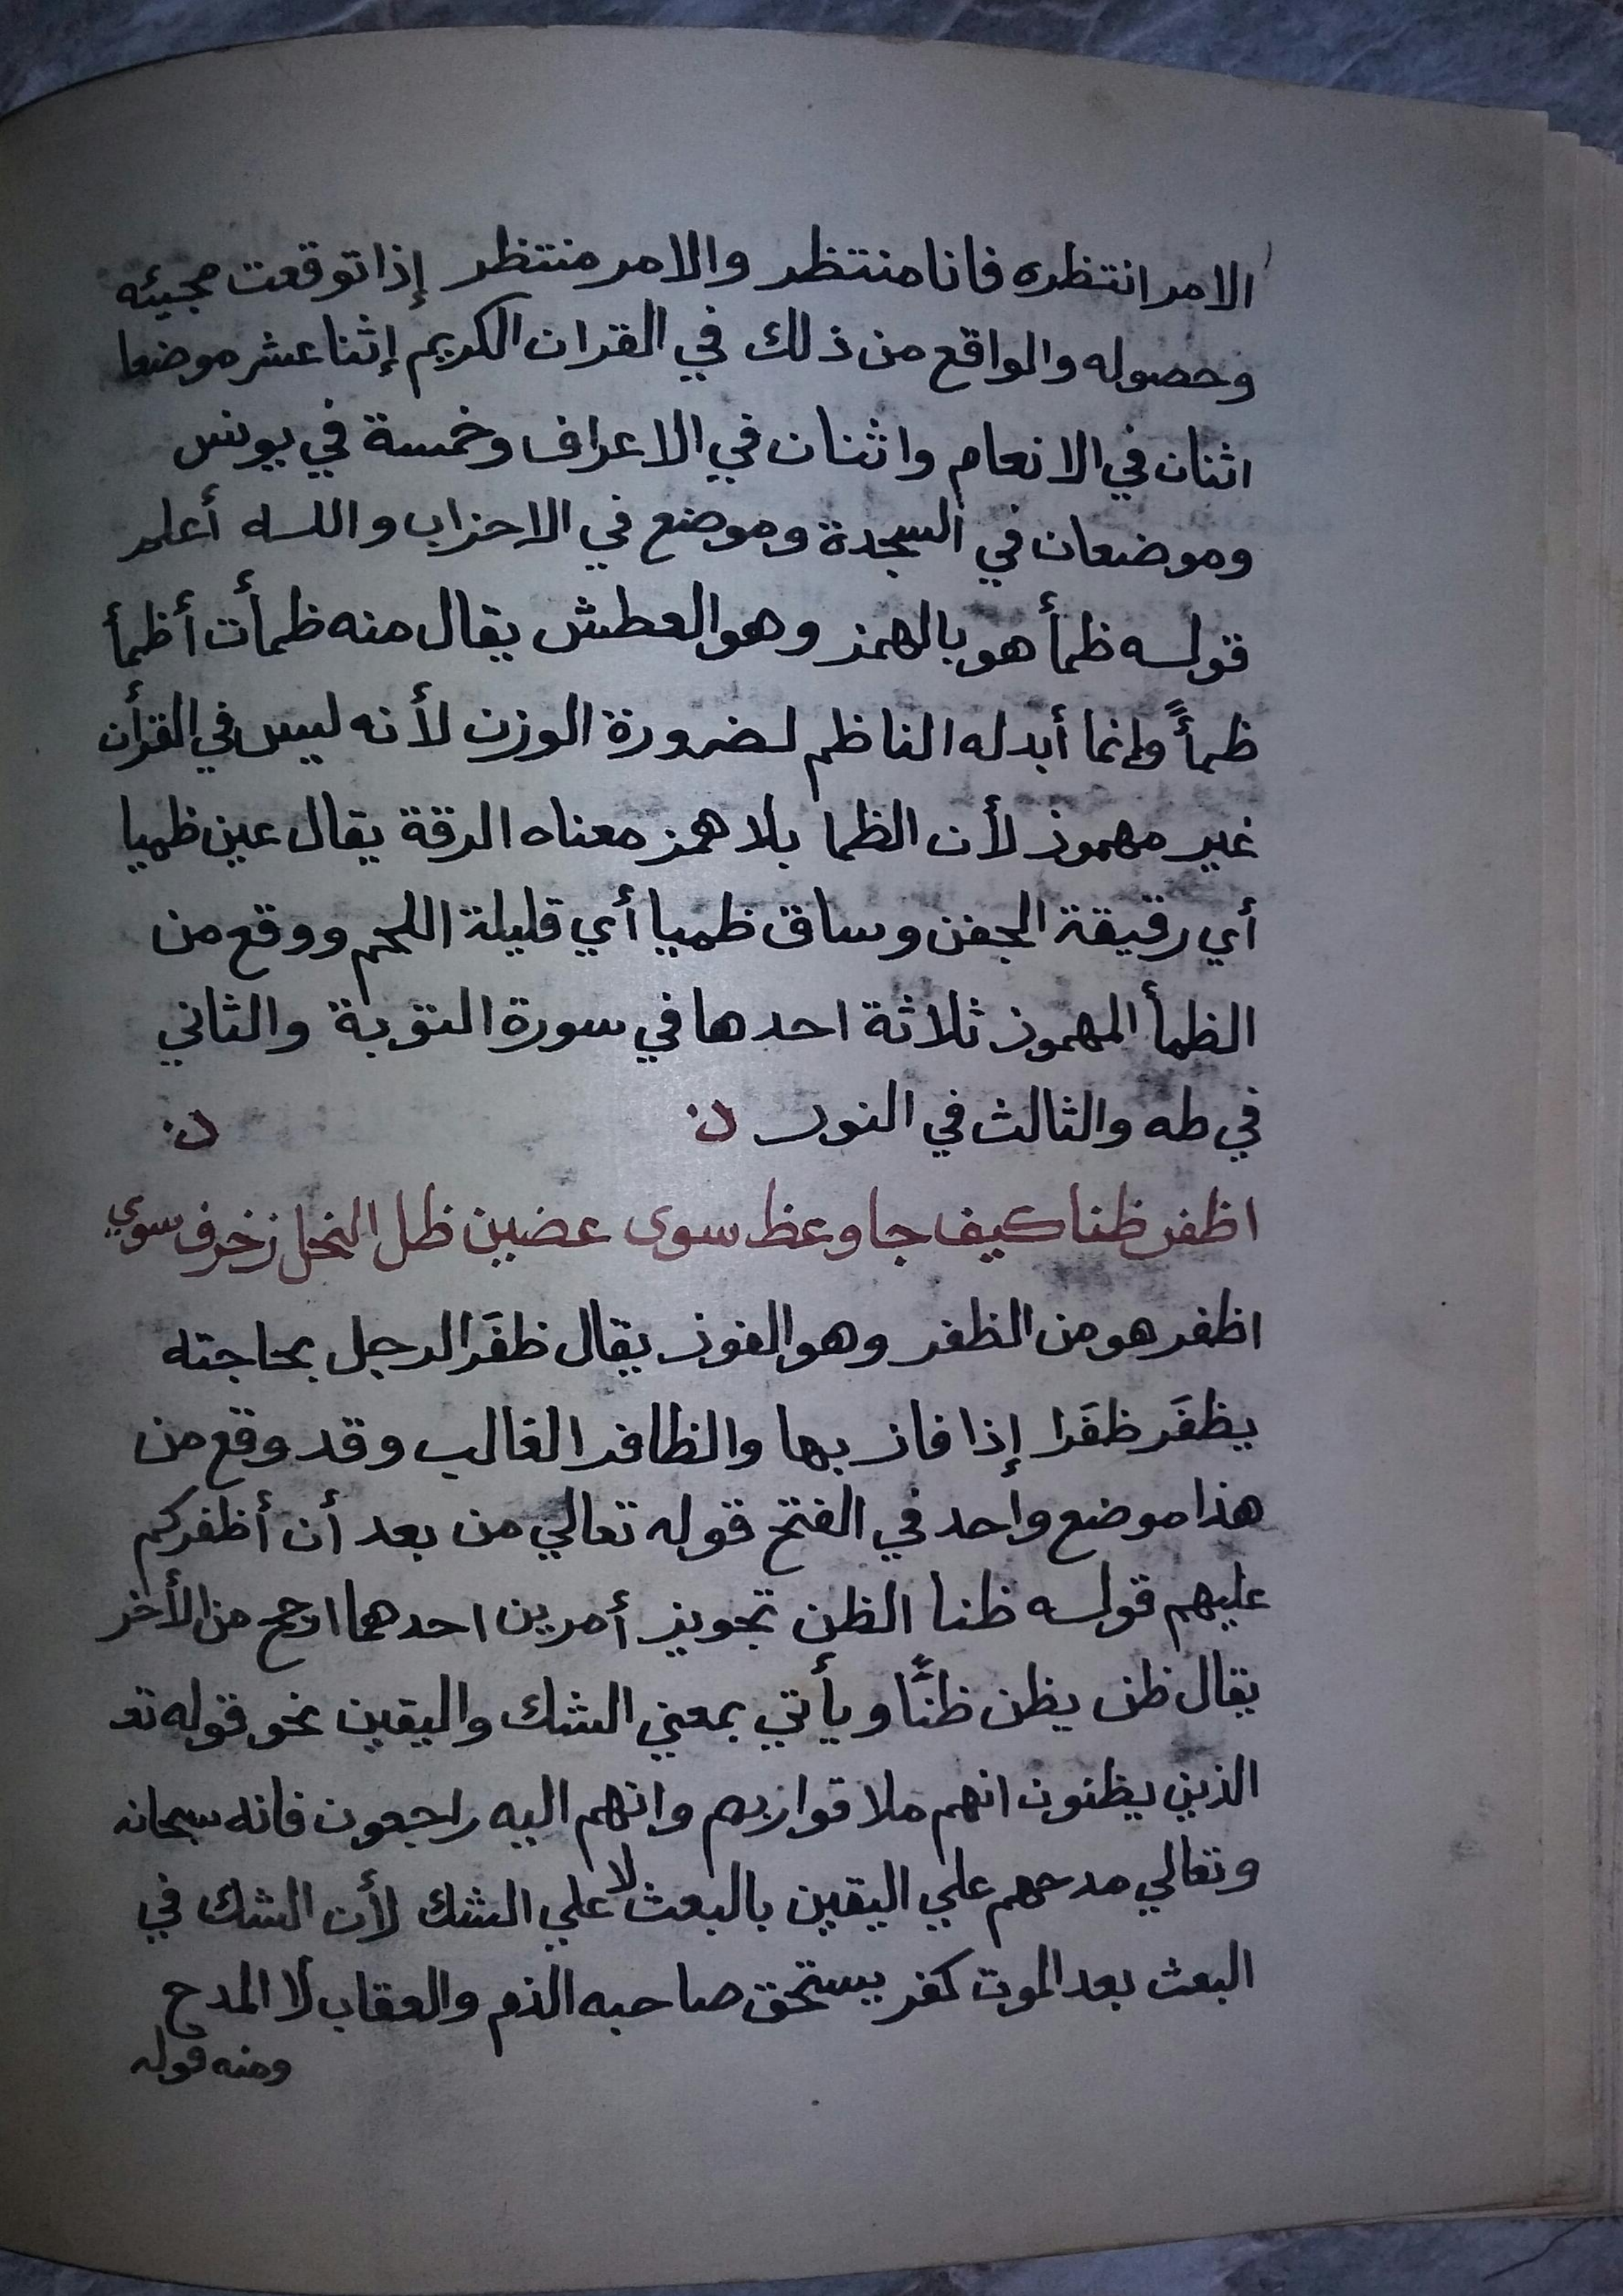 الامر انتظره فانا منتظر والامر منتظر إذا توقعت مجيئه
وحصوله والواقع من ذلك في القران الكريم إثنا عشر موضعا
اثنان في الانعام واثنان في الاعراف وخمسة في يونس
وموضعان في السجدة وموضع في الاحزاب والله أعلم
قوله ظمأ هو بالهمز وهو العطش يقال منه ظمأت أظمأ
ظمأً وإنما أبدله الناظم لضرورة الوزن لأنه ليس في القرأن
غير مهموز لأن الظما بلا همز معناه الرقة يقال عين ظميا
أي رقيقة الجفن وساق ظميا أي قليلة اللحم ووقع من
الظمأ المهموز ثلاثة احدها في سورة التوبة والثاني
في طه والثالث في النور
اظفر ظنا كيف جا وعظ سوى عضين ظل النحل زخرف سوي
اظفر هو من الظفر وهو الفوز يقال ظفَر الرجل بحاجته
يظفَر ظفَرا إذا فاز بها والظافر الغالب وقد وقع من
هذا موضع واحد في الفتح قوله تعالي من بعد أن أظفركم
عليهم قوله ظنا الظن تجويز أمرين احدهما ارجح من الأخر
يقال ظن يظن ظنًّا ويأتي بمعني الشك واليقين نحو قوله تع
الذين يظنون انهم ملاقوا ربهم وانهم اليه راجعون فانه سبحانه
وتعالي مدحهم علي اليقين بالبعث لا علي الشك لأن الشك في
البعث بعد الموت كفر يستحق صاحبه الذم والعقاب لا المدح
ومنه قوله